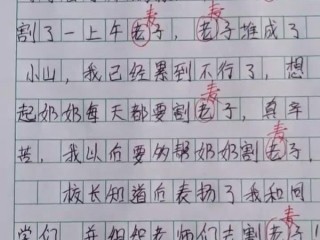 麦 麦
割了一上午老子，老子堆成了
小山，我已经累到不行了，想
麦
起奶奶每天都要割老子，真辛
麦
苦，我以后要多帮奶奶割老子。
校长知道后表扬了我和同
麦
学们，并组织老师们去割老子！